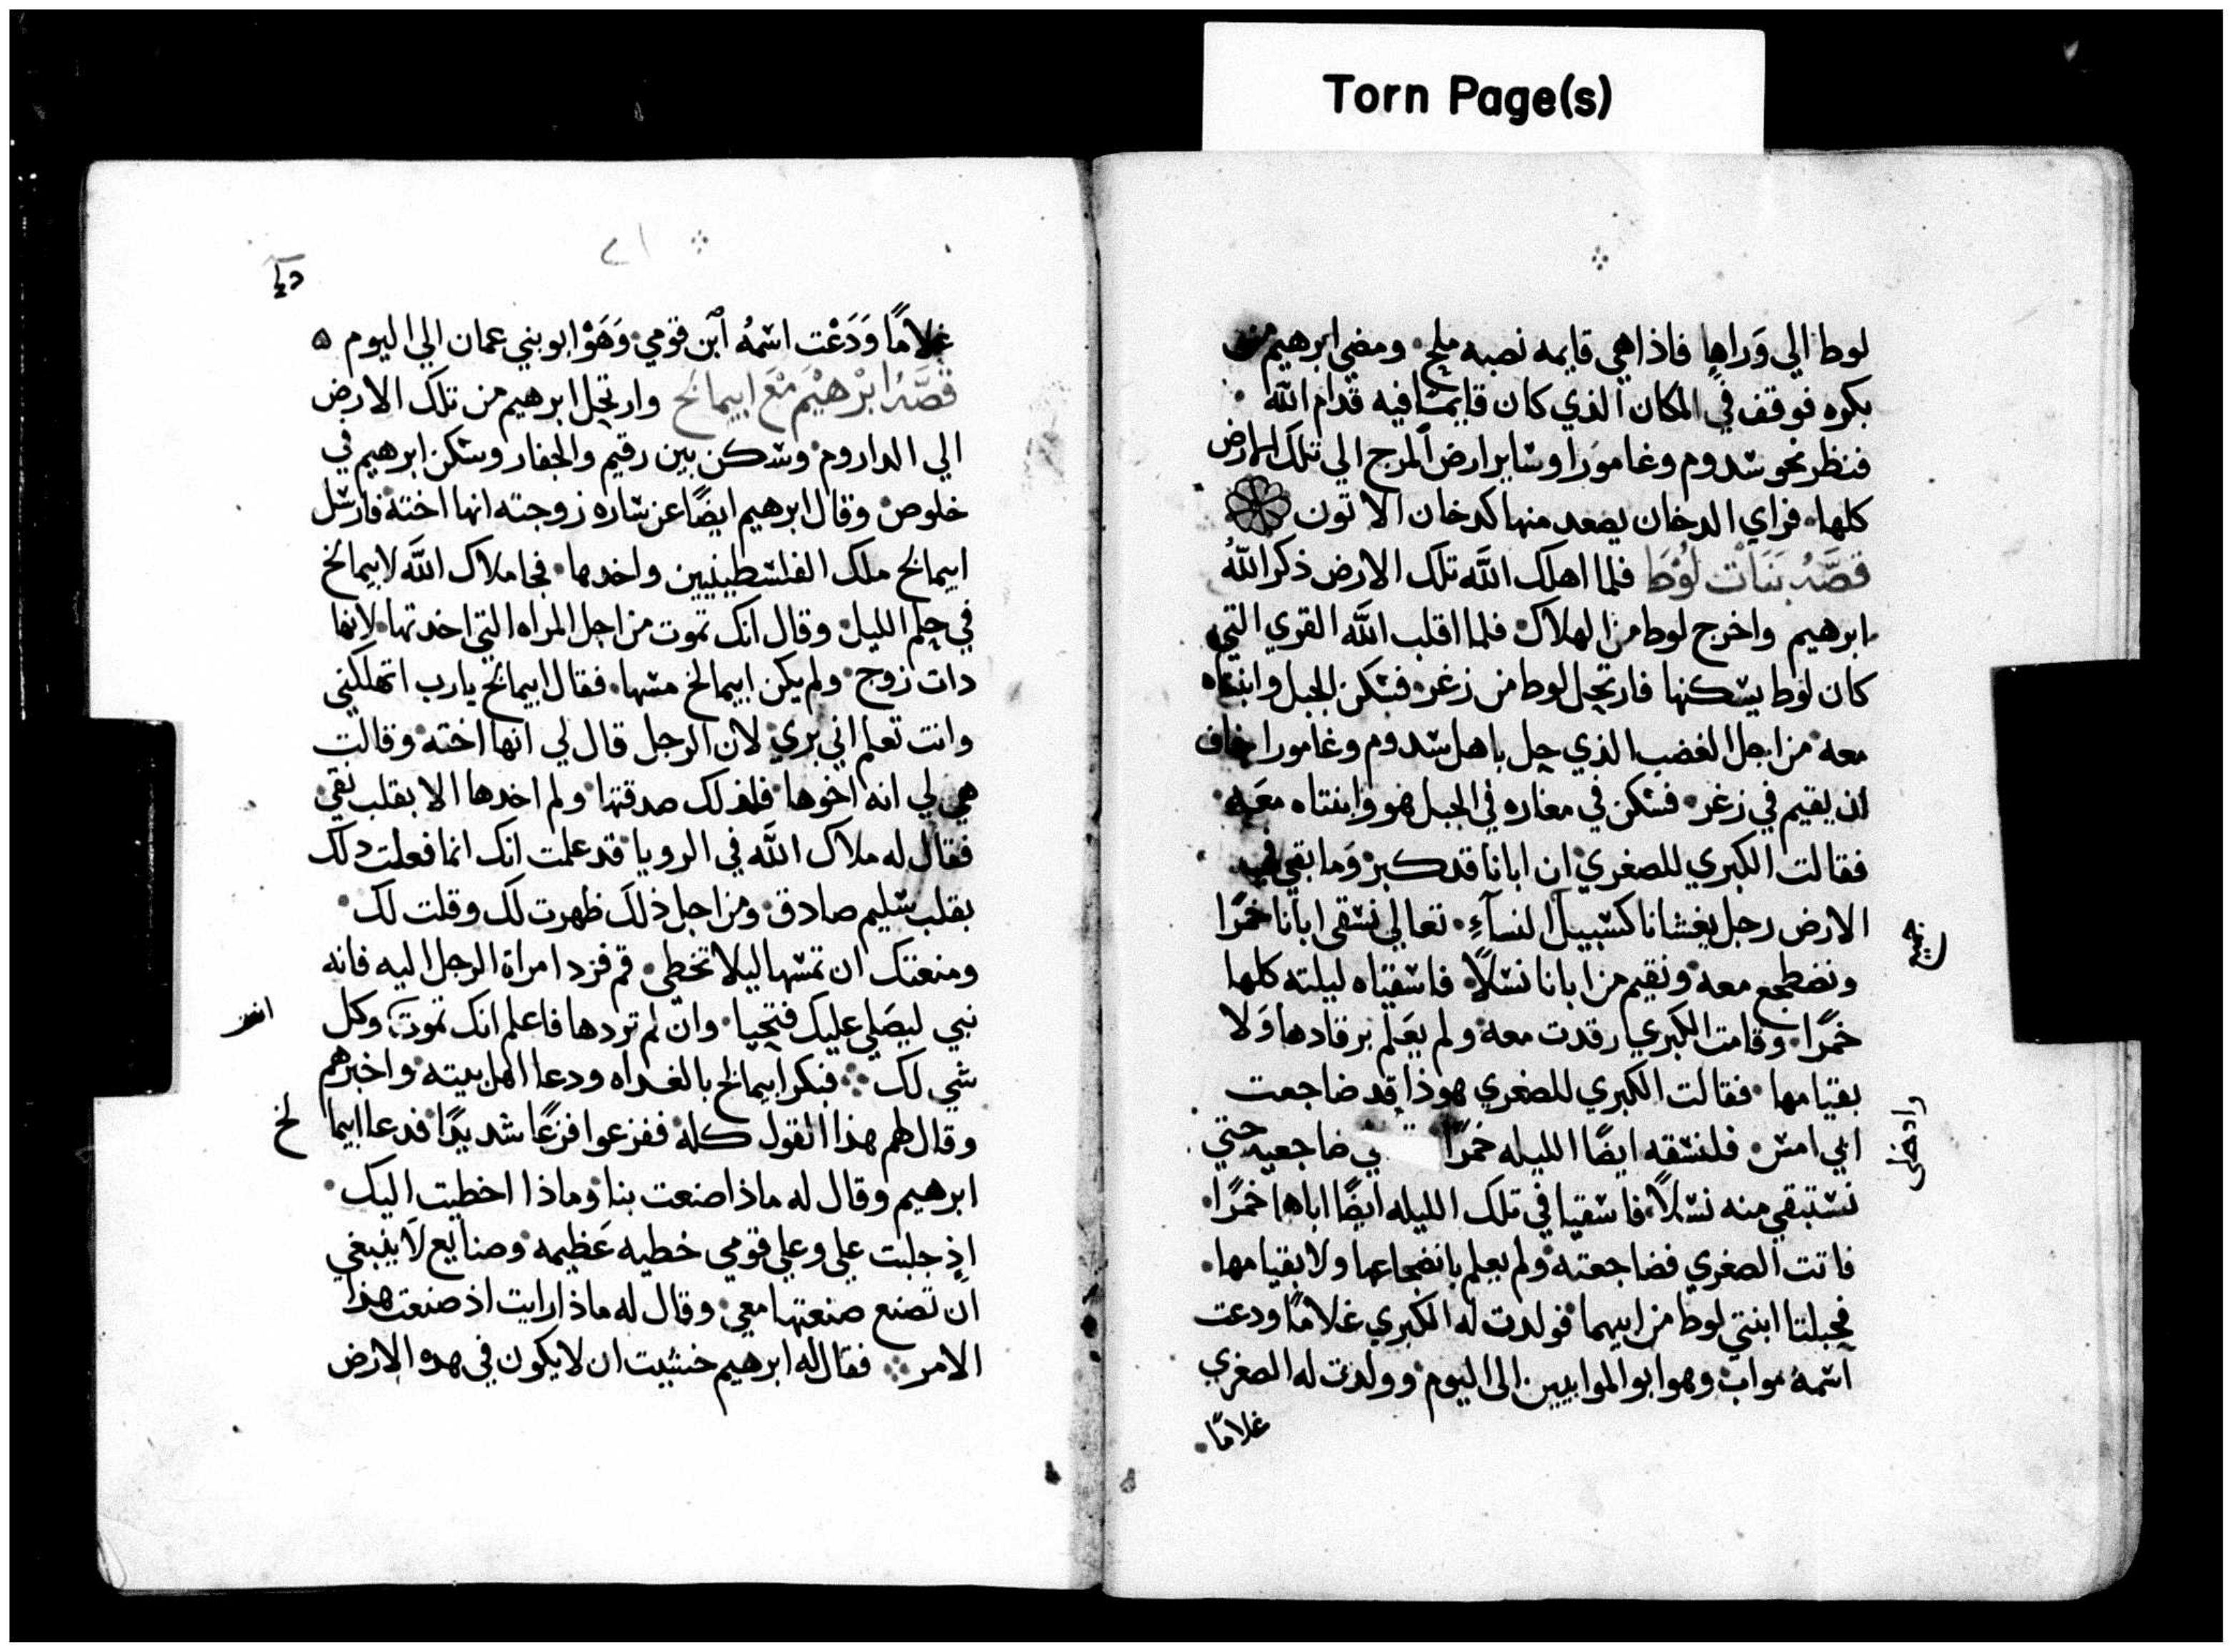 Torn Page(s)
لوط الي وَراها فاذا هي قايمه نصبه ملح ومضي ابرهيم من
بكره فوقف في المكان الذي كان قايمًا فيه قدام الله
فنظر نحو سدوم وغامورا وساير ارض المرج الي تلك الارض
كلها فراي الدخان يصعد منها كدخان الاتون
قصَّهُ بَنَاتْ لُوْطَا فلما اهلك اللَّه تلك الارض ذكر اللهُ
ابرهيم واخرج لوط من الهلاك فلما اقلب اللَّه القري التي
كان لوط يسكنها فارتحل لوط من زغر فسكن الجبل وابنتاه
معه من اجل الغضب الذي حل باهل سدوم وغامورا خاف
ان يقيم في زغر فسكن في مغاره في الجبل هو وابنتاه معَه
فقالت الكبري للصغري ان ابانا قد كبر وَما بقي في
الارض رجل يغشانا كسبيل النسآءِ تعالي نسقى ابانا خمرًا
ونضطجع معه ونقيم من ابانا نسلًا فاسقتاه ليلته كلها
خمرًا وقامت الكبري رقدت معه ولم يعَلم برقادها وَلا
بقيامها فقالت الكبري للصغري هوذا قد ضاجعت
ابي امس فلنسقه ايضًا الليله خمرًا ضاجعيه حتي
نستبقي منه نسلًا فاسقيا في تلك الليله ايضًا اباها خمرًا
فاتت الصغري فضاجعته ولم يعلم بانضجاعها ولا بقيامها
فحبلتا ابنتي لوط من ابيهما فولدت له الكبري غلامًا ودعت
اسمهُ مواب وهو ابو الموابيين الى اليوم وولدت له الصغري
غلامًا
غلامًا وَدَعْت اسْمُه اَبن قومي وَهَوْ ابو بني عمان الي اليوم
قصَّهُ ابْرهيْمَ مْعَ ابيمالخ وارتحل ابرهيم من تلك الارض
الي الداروم وسكن بين رقيم والجفار وسكن ابرهيم في
خلوص وقال ابرهيم ايضًا عن ساره زوجته انها اخته فارسل
ابيمالخ ملك الفلسطينيين واخدها فجا ملاك اللَّه لابيمالخ
في حلم الليل وقال انك تموت من اجل المراه التي اخدتها لانها
دات زوج ولم يكن ابيمالخ مسها فقال ابيمالخ يارب اتهلكني
وانت تعلم اني بري لان الرجل قال لي انها اخته وقالت
هي لي انه اخوها فلذلك صدقتها ولم اخدها الا بقلب نقي
فقال له ملاك اللَّه في الرويا قد علمت انك انما فعلت دلك
بقلب سليم صادق ومن اجل ذلك ظهرت لك وقلت لك
ومنعتك ان تمسها ليلا تخطي قم فرد امراة الرجل اليه فانه
نبي ليصَلي عليك فتحيا وان لم تردها فاعلم انك تموت وكل
شي لك فبكر ابيمالخ بالغداه ودعا اهل بيته واخبرهم
وقال لهم هذا القول كله ففزعوا فزعًا شديدًا فدعا ابيما لخ
ابرهيم وقال له ماذا صنعت بنا وماذا اخطيت اليك
اذ جلبت علي وعلي قومي خطيه عَظيمه وصنايع لَا ينبغي
ان تصنع صنعتها معي وقال له ماذا رايت اذ صنعت هذا
الامر فقال له ابرهيم خشيت ان لا يكون في هده الارض